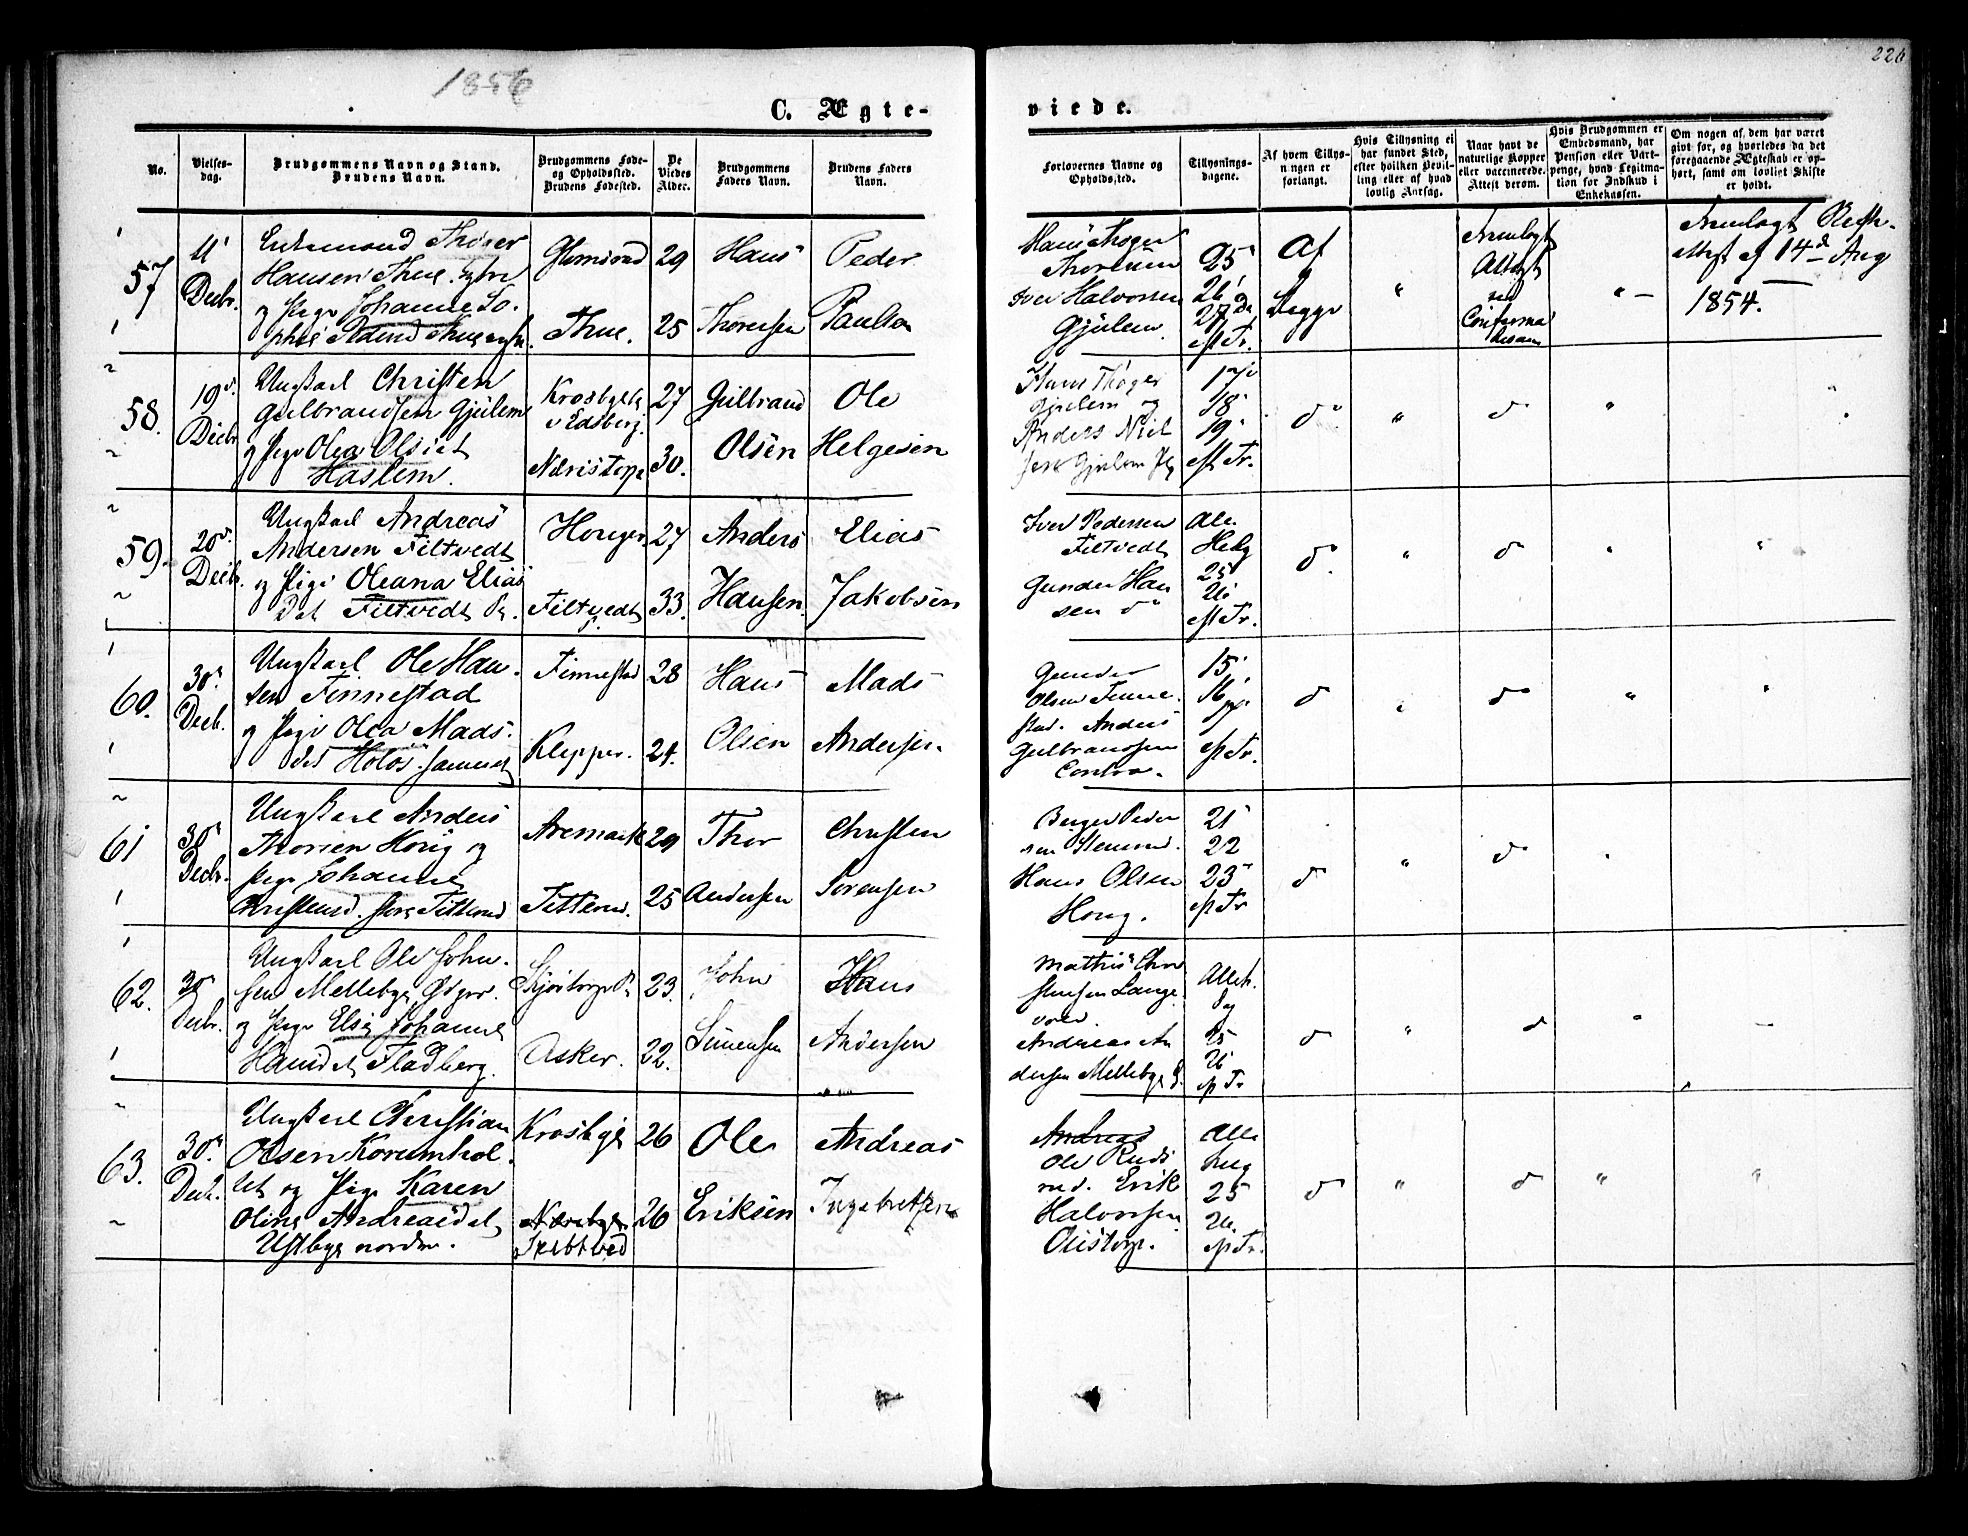 226
1856
C. Ægte-
viede.
No.
Vielses-
dag.
Brudgommens Navn og Stand.
Brudens Navn.
Brudgommens Føde-
og Opholdssted.
Brudens Fødested.
De
Viedes
Alder.
Brudgommens
Faders Navn.
Brudens Faders
Navn.
Forlovernes Navne og
Opholdssted.
Tillysnings-
dagene.
Af hvem Tillys-
ningen er
forlangt.
Hvis Tillysning ei
har fundet Sted,
efter hvilken Bevil-
ling eller af hvad
lovlig Aarsag.
Naar havt de
naturlige Kopper
eller vaccinerede.
Attest derom.
Hvis Brudgommen er
Embedsmand, har
Pension eller Vart-
penge, hvad Legitima-
tion for Indskud i
Enkekassen.
Om nogen af dem har været
givt for, og hvorledes da det
foregaaende Ægteskab er op-
hørt, samt om lovligt Skifte
er holdt.
57
11'
Decbr.
Enkemand
Hansen Thue
og Pige Johanne So-
phie
Thue
29
25
Hans
Thoresen
Peder
Paulsen
Hans
Iver Halvorsen
Gjülem
25
26'
27 De
est Tr.
Af
begge
Fremlagt
Attest
Fremlagt
Attest af 14d Aug
1854.
58.
19
Decbr
Ungkarl Christen
Gulbrandsen Gjülem
og Pige Olea Olsdt
Haslem.
Krosbye
v Edsberg.
27
30.
Gulbrand
Olsen
Ole
Helgesen
Hans Thøger
Gjülem og
Anders Niel
sen Gjülem
17
18
19
est Tr.
do
do
59.
20
Decbr
Ungkarl Andreas
Andersen Filtvedt
og Pige Oleana Elias
Dat Filtvedt
Filtvedt
27
33.
Anders
Hansen.
Elias
Jakobsen
Iver Pedersen
Filtvedt
Gunder Han
sen do
Alle
Helg
25
26
est Tr.
do
do
60.
30
Decb.
Ungkarl Ole Han-
sen Finnestad
og Pige Olea Mads-
dat
Finnestad
Klepper.
28
24.
Hans
Olsen
Mads
Andersen
Gunder
Olsen Finne-
stad. Anders
Gulbransen
15
16
17
est Tr.
do
do
61
30
Decbr.
Ungkarl Anders
Thoresen Horig og
Pige Johanne
Christensd.
Aremark
29
25
Thor
Andersen
Christen
Sorensen
Peder
sen
Hans Olsen
21
22
23
est Tr
do
do
62.
30
Decbr.
Ungkarl Ole John-
sen Mellebye
og Pige Elise Johanne
Hansdt Fladberg.
Asker.
23.
22.
John
Simensen
Hans
Andersen
Mathis Chri
stensen Lange
Andreas An
dersen Mellebye
25
26
est Tr
do
do
63.
30
Decbr.
Ungkarl Christian
Olsen Korumhol
tet og Pige Karen
Oline Andreasdt
Ustbye nordre.
Krosbye
Skibtved
26
26
Ole
Eriksen
Andreas
Ingebretsen
Andreas
Ole
Erik
Halvorsen
Olistorp.
Alle
25
26.
est Tr.
do
do